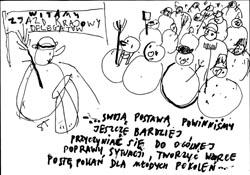 WITAMY
ZJAZD KRAJOWY
DELEGATÓW
...SWOJĄ POSTAWĄ POWINNIŚMY
JESZCZE BARDZIEJ
PRZYCZYNIAĆ SIĘ DO OGÓLNEJ
POPRAWY SYTUACJI, TWORZYĆ WZORCE
POSTĘPOWAŃ DLA MŁODYCH POKOLEŃ...